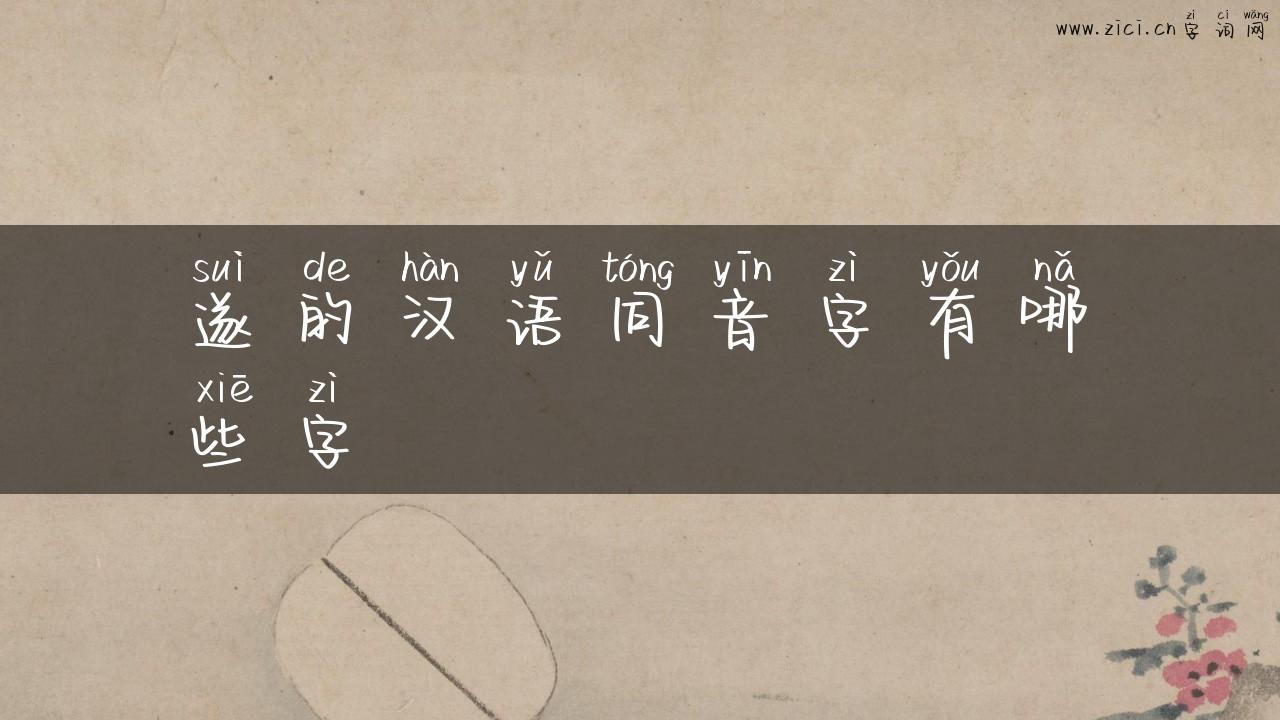 zì cí wǎng
www.zici.cn字词网
suì de hàn yǔ tóng yīn zì yǒu nǎ
遂的汉语同音字有哪
xiē zì
些字